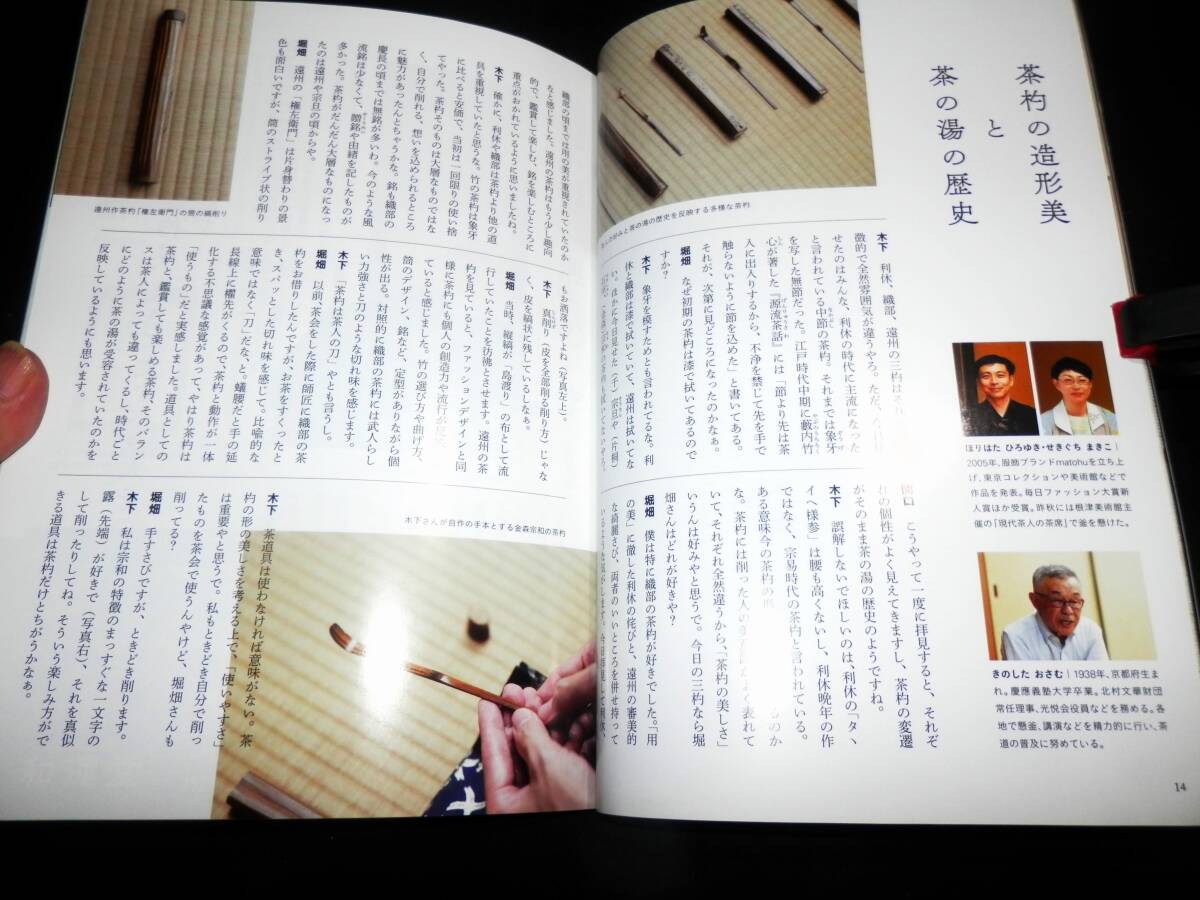 茶杓の造形美
と
茶の湯の歴史
木下　利休、織部、遠州の三杓はそれ
徴的で全然雰囲気が違うやろ。ただ、
せたのはみんな、利休の時代に主流になった
と言われている中節の茶杓。それまでは象牙
を写した無節だった。江戸時代中期に藪内竹
心が著した『源流茶話』には「節より先は茶
人に出入りするから、不浄を禁じて先を手で
触らないように節を込めた」と書いてある。
それが、次第に見どころになったのかなぁ。
堀畑　なぜ初期の茶杓は漆で拭いてあるので
すか？
木下　象牙を模すためとも言われてるな。利
休、織部は漆で拭いていて、遠州は拭いてな
い。ほかに今日見せた（千）宗旦や（片桐）
関口　こうやって一度に拝見すると、それぞ
れの個性がよく見えてきますし、茶杓の変遷
がそのまま茶の湯の歴史のようですね。
木下　誤解しないでほしいのは、利休の「タヽ
イヘ様参」は腰も高くないし、利休晩年の作
ではなく、宗易時代の茶杓と言われている。
ある意味今の茶杓の
るのか
な。茶杓には削った人の
よく表れて
いて、それぞれ全然違うから、「茶杓の美しさ」
いうんは好みやと思うで。今日の三杓なら堀
畑さんはどれが好きや？
堀畑　僕は特に織部の茶杓が好きでした。「用
の美」に徹した利休の侘びと、遠州の審美的
な綺麗さび、両者のいいところを併せ持って
いるような気がします。今日拝見して利休、
ほりはた ひろゆき・せきぐち まきこ｜
2005年、服飾ブランドmatohuを立ち上
げ、東京コレクションや美術館などで
作品を発表。毎日ファッション大賞新
人賞ほか受賞。昨秋には根津美術館主
催の「現代茶人の茶席」で釜を懸けた。
きのした おさむ｜1938年、京都府生ま
れ。慶應義塾大学卒業。北村文華財団
常任理事、光悦会役員などを務める。各
地で懸釜、講演などを精力的に行い、茶
道の普及に努めている。
人の好みと茶の湯の歴史を反映する多様な茶杓
14
織部の頃までは用の美が重視されていたのか
なと感じました。遠州の茶杓はもう少し趣向
的で、鑑賞して楽しむ、銘を楽しむところに
重点がおかれているように思いましたね。
木下　確かに、利休や織部は茶杓より他の道
具を重視していたと思うな。竹の茶杓は象牙
に比べると安価で、当初は一回限りの使い捨
てやった。茶杓そのものは大層なものではな
く、自分で削れる、想いを込められるところ
に魅力があったんとちゃうかな。銘も織部の
慶長の頃までは無銘が多いわ。今のような風
流銘は少なくて、贈銘や由緒を記したものが
多かった。茶杓がだんだん大層なものになっ
たのは遠州や宗旦の頃からや。
堀畑　遠州の「権左衛門」は片身替わりの景
色も面白いですが、筒のストライプ状の削り
遠州作茶杓「権左衛門」の筒の縞削り
もお洒落ですよね（写真左上）。
木下　真削り（皮を全部削る削り方）じゃな
く、皮を縞状に残しているしなぁ。
堀畑　当時、縦縞が「島渡り」の布として流
行していたことを彷彿とさせます。遠州の茶
杓を見ていると、ファッションデザインと同
様に茶杓にも個人の創造力や流行が反
ていると感じました。竹の選び方や曲げ方、
筒のデザイン、銘など、定型がありながら個
性が出る。対照的に織部の茶杓には武人らし
い力強さと刀のような切れ味を感じます。
木下　「茶杓は茶人の刀」やとも言うし。
堀畑　以前、茶会をした際に師匠に織部の茶
杓をお借りしたんですが、お茶をすくったと
き、スパッとした切れ味を感じて。比喩的な
意味ではなく「刀」だなと。蟻腰だと手の延
長線上に櫂先がくるので、茶杓と動作が一体
化する不思議な感覚があって、やはり茶杓は
「使うもの」だと実感しました。道具としての
茶杓と、鑑賞しても楽しめる茶杓、そのバラン
スは茶人によっても違ってくるし、時代ごと
にどのように茶の湯が受容されていたのかを
反映しているようにも思います。
木下さんが自作の手本とする金森宗和の茶杓
木下　茶道具は使わなければ意味がない。茶
杓の形の美しさを考える上で、「使いやすさ」
は重要やと思うで。私もときどき自分で削っ
たものを茶会で使うんやけど、堀畑さんも
削ってる？
堀畑　手すさびですが、ときどき削ります。
木下　私は宗和の特徴のまっすぐな一文字の
露（先端）が好きで（写真右）、それを真似
して削ったりしてね。そういう楽しみ方がで
きる道具は茶杓だけとちがうかなぁ。